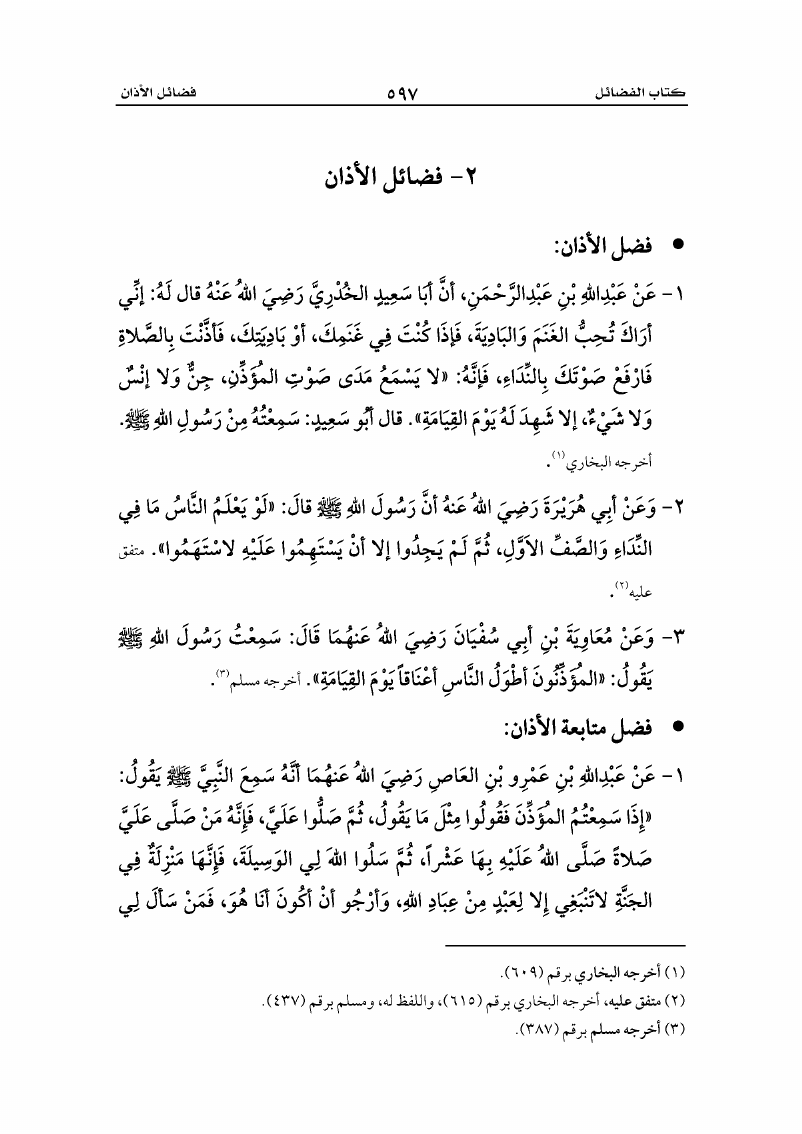 كتاب الفضائل ٥٩٧ فضائل الأذان
٢- فضائل الأذان
• فضل الأذان:
١- عَنْ عَبْدِاللهِ بْنِ عَبْدِالرَّحْمَنِ، أنَّ أبَا سَعِيدٍ الخُدْرِيَّ رَضِيَ اللهُ عَنْهُ قال لَهُ: إنِّي
أرَاكَ تُحِبُّ الغَنَمَ وَالبَادِيَةَ، فَإذَا كُنْتَ فِي غَنَمِكَ، أوْ بَادِيَتِكَ، فَأذَّنْتَ بِالصَّلاةِ
فَارْفَعْ صَوْتَكَ بِالنِّدَاءِ، فَإنَّهُ: «لا يَسْمَعُ مَدَى صَوْتِ المؤَذِّنِ، جِنٌّ وَلا إنْسٌ
وَلا شَيْءٌ، إلا شَهِدَ لَهُ يَوْمَ القِيَامَةِ». قال أبُو سَعِيدٍ: سَمِعْتُهُ مِنْ رَسُولِ اللهِ ﷺ.
أخرجه البخاري(١).
٢- وَعَنْ أبِي هُرَيْرَةَ رَضِيَ اللهُ عَنهُ أنَّ رَسُولَ اللهِ ﷺ قالَ: «لَوْ يَعْلَمُ النَّاسُ مَا فِي
النِّدَاءِ وَالصَّفِّ الاَوَّلِ، ثُمَّ لَمْ يَجِدُوا إلا أنْ يَسْتَهِمُوا عَلَيْهِ لاسْتَهَمُوا». متفق
عليه(٢).
٣- وَعَنْ مُعَاوِيَةَ بْنِ أبِي سُفْيَانَ رَضِيَ اللهُ عَنهُمَا قَالَ: سَمِعْتُ رَسُولَ اللهِ ﷺ
يَقُولُ: «المُؤَذِّنُونَ أطْوَلُ النَّاسِ أعْنَاقاً يَوْمَ القِيَامَةِ». أخرجه مسلم(٣).
• فضل متابعة الأذان:
١- عَنْ عَبْدِاللهِ بْنِ عَمْرِو بْنِ العَاصِ رَضِيَ اللهُ عَنهُمَا أنَّهُ سَمِعَ النَّبِيَّ ﷺ يَقُولُ:
«إِذَا سَمِعْتُمُ المؤَذِّنَ فَقُولُوا مِثْلَ مَا يَقُولُ، ثُمَّ صَلُّوا عَلَيَّ، فَإِنَّهُ مَنْ صَلَّى عَلَيَّ
صَلاةً صَلَّى اللهُ عَلَيْهِ بِهَا عَشْراً، ثُمَّ سَلُوا اللهَ لِي الوَسِيلَةَ، فَإِنَّهَا مَنْزِلَةٌ فِي
الجَنَّةِ لاتَنْبَغِي إِلا لِعَبْدٍ مِنْ عِبَادِ اللهِ، وَأرْجُو أنْ أكُونَ أنَا هُوَ، فَمَنْ سَألَ لِي
(١) أخرجه البخاري برقم (٦٠٩).
(٢) متفق عليه، أخرجه البخاري برقم (٦١٥)، واللفظ له، ومسلم برقم (٤٣٧).
(٣) أخرجه مسلم برقم (٣٨٧).